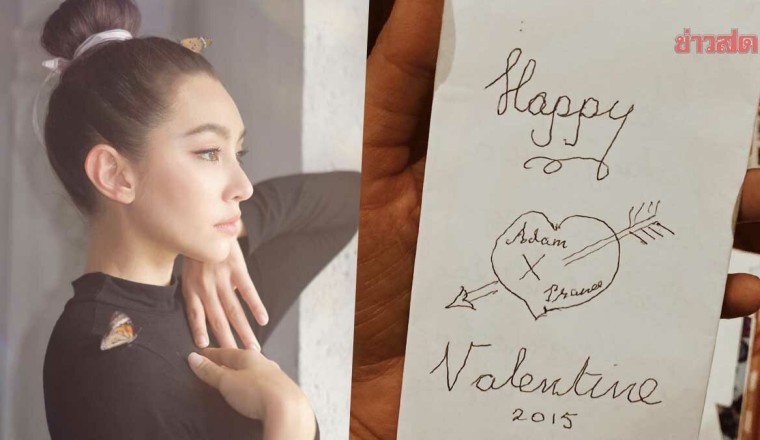 ข่าวสด
Happy
Adam
X
Valentine
2015